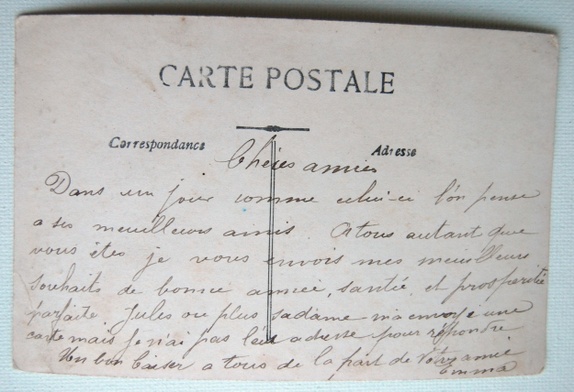 CARTE POSTALE
Correspondance
Adresse
Chéres amies
Dans un jour comme celui-ci l'on pense
a ses meuilleurs amis A tous autant que
vous êtes je vous envois mes meuilleurs
souhaits de bonne année, santié et prosperitée
parfaite Jules ou plus sa dame m'a envoyé une
carte mais je n'ai pas leur adresse pour repondre
Un bon baiser a tous de la part de Votre amie
Emma